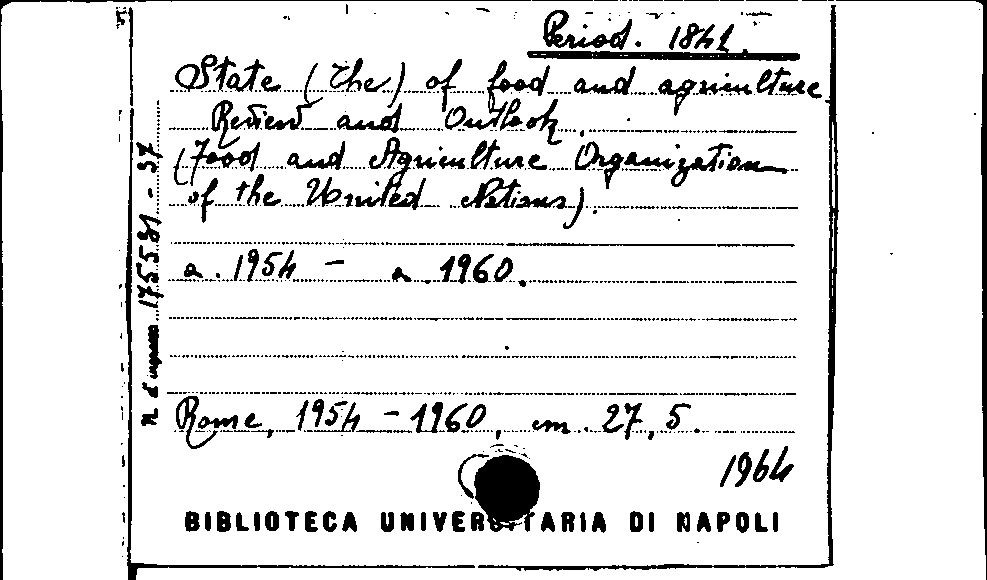 Period. 1841.
State (The) of food and agriculture
Review and Outlook.
(Food and Agriculture Organization
of the United Nations).
a. 1954 - a. 1960.
Rome, 1954 - 1960, cm. 27,5.
1964
BIBLIOTECA UNIVERSITARIA DI NAPOLI
N. d'ingresso 175531 - 37